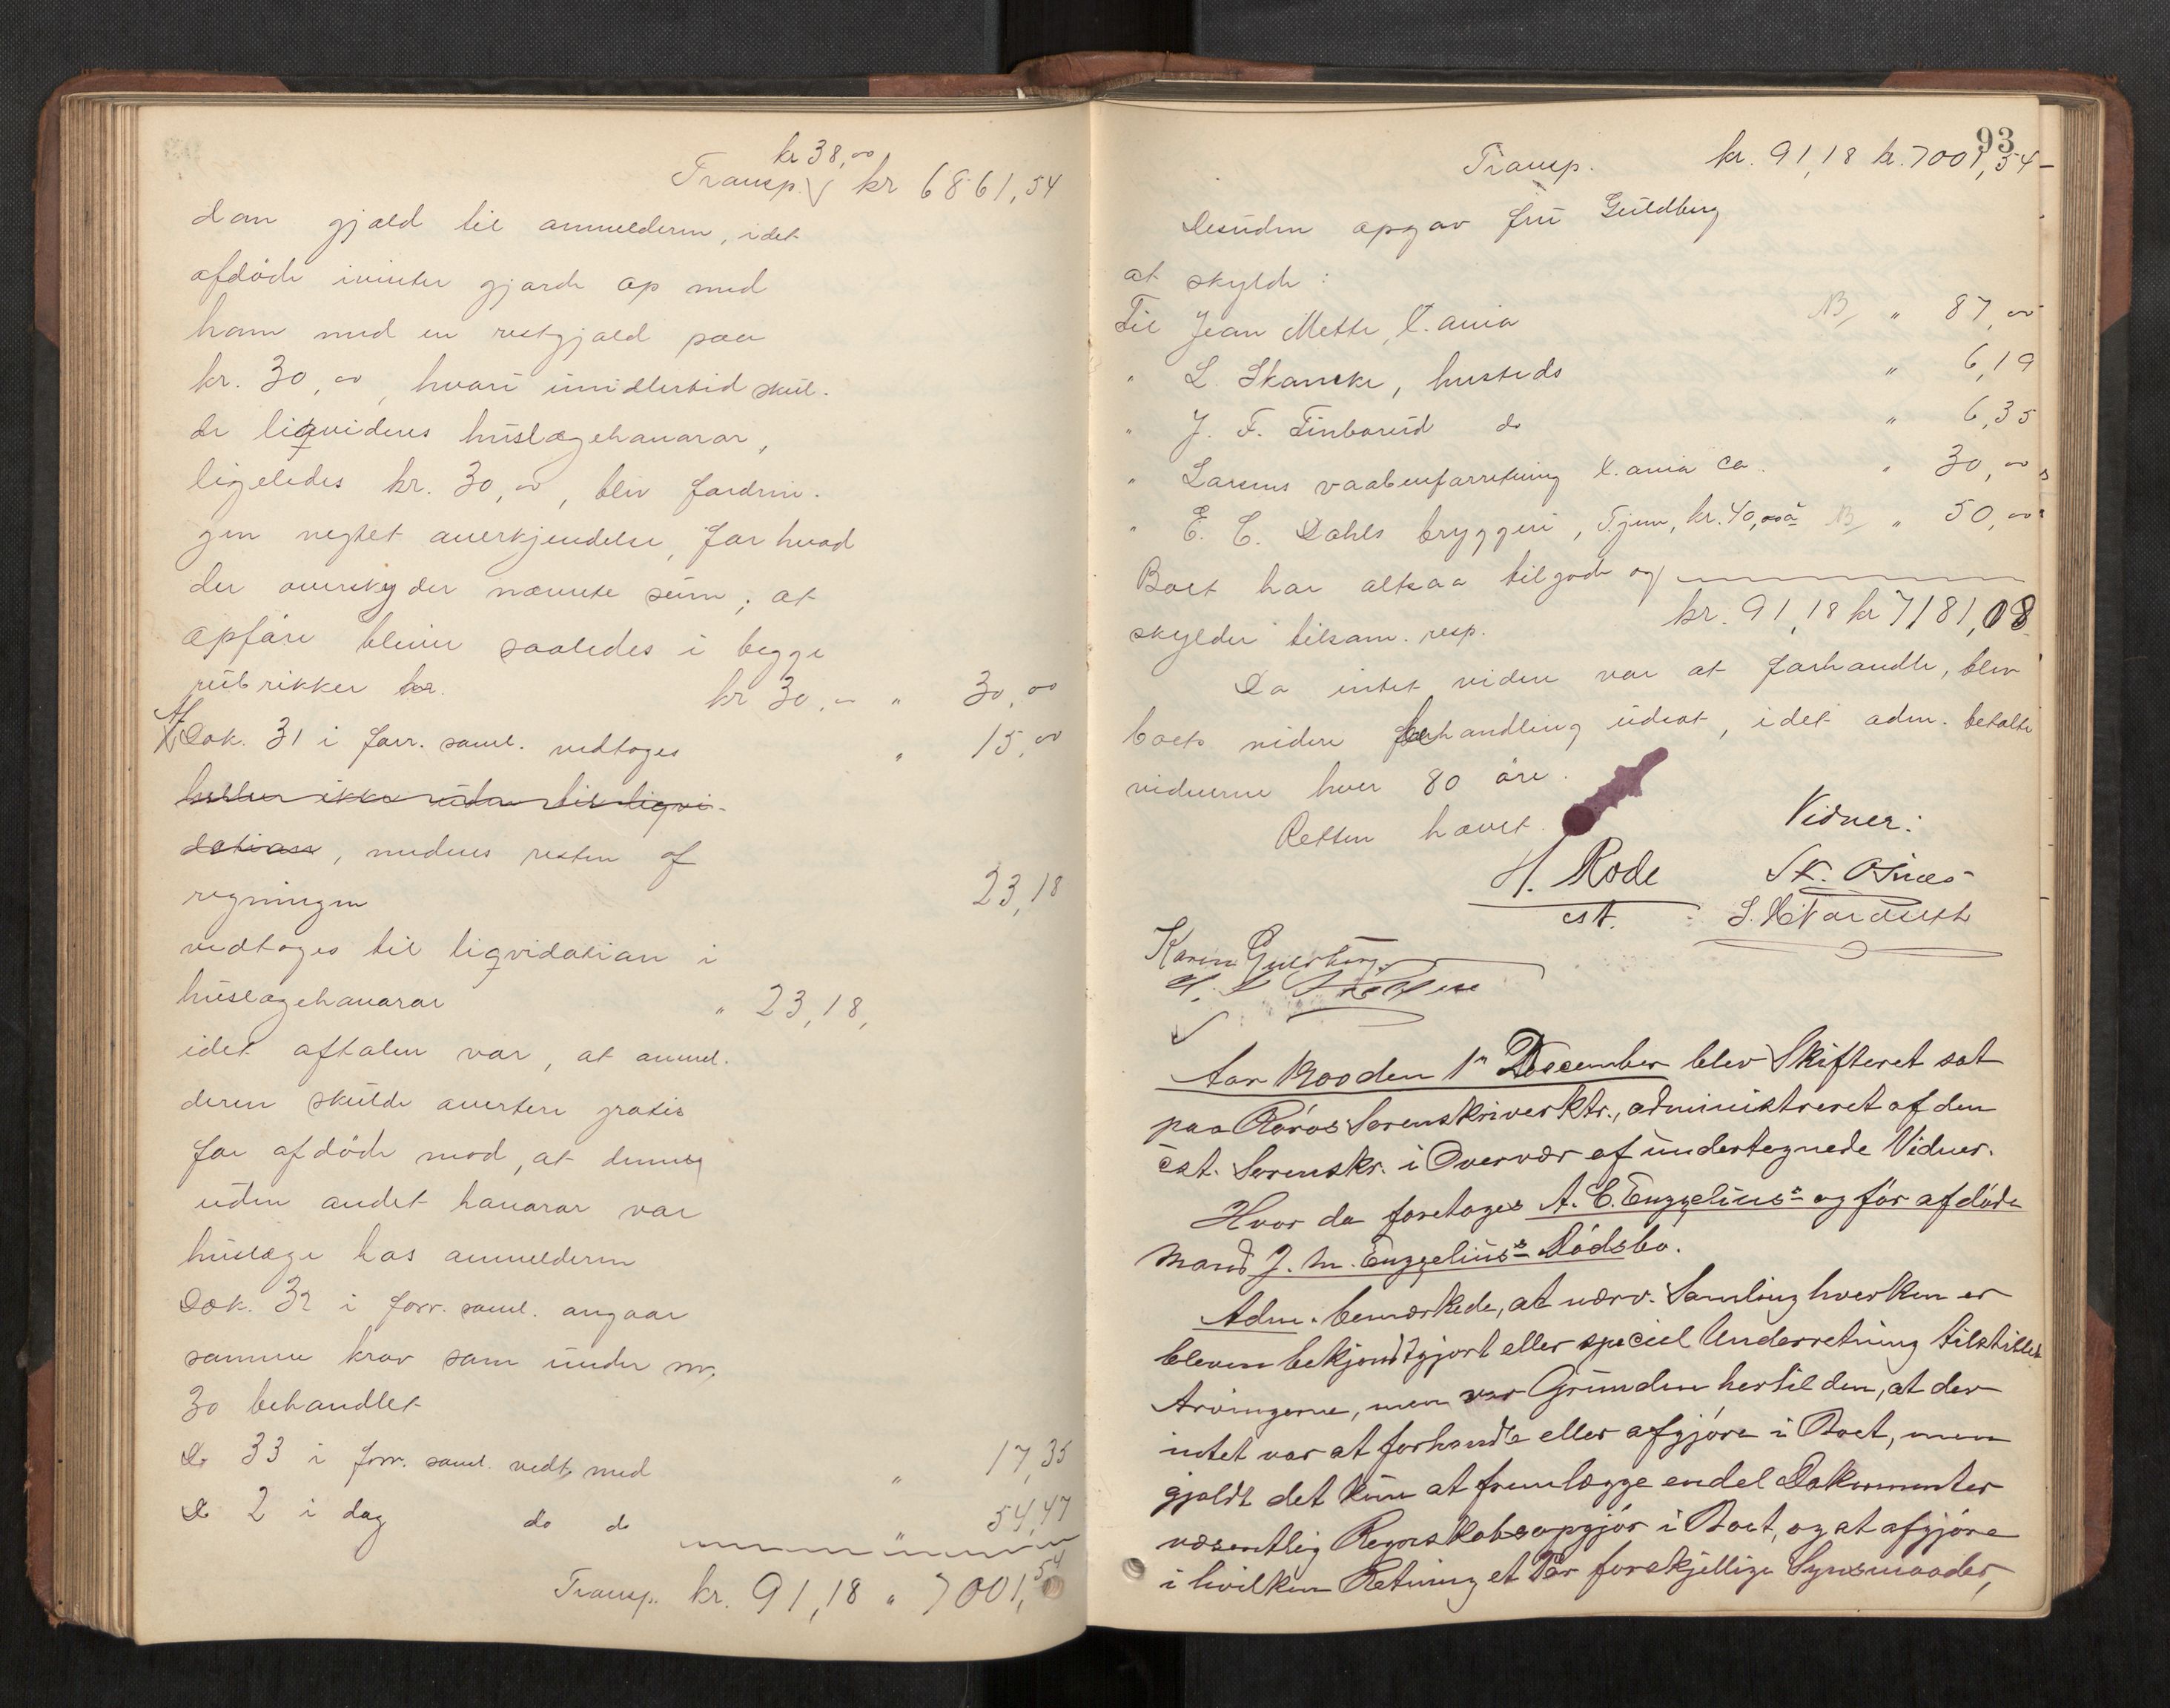 kr 38,00
Transp. kr 6861,54
dom gjæld til anmelderen, idet
afdøde ivinter gjorde op med
ham med en restgjæld paa
kr. 30,00, hvori imidlertid skul-
de liqvideres huslægehonorar,
ligeledes kr. 30,00, blev fordrin-
gen negtet anerkjendelse, for hvad
der overskyder nævnte sum; at
opføre bliver saaledes i begge
rubrikker kr. kr 30,00 " 30,00
Af Dok. 31 i forr. saml. vedtoges " 15,00
heller ikke uden til liqvi-
dation, medens resten af
regningen 23,18
vedtoges til liqvidation i
huslægehonorar " 23,18,
idet aftalen var, at anmel-
deren skulde avertere gratis
for afdøde mod, at denne
uden andet honorar var
huslæge hos anmelderen
Dok. 32 i forr. saml. angaar
samme krav som under nr.
30 behandlet
Do 33 i forr. saml. vedt. med " 17,35
Do 2 i dag do do " 54,47
Transp. kr. 91,18 " 7001,54
93
Transp. kr. 91,18 kr. 7001,54
Desuden opgav fru Guldberg
at skylde:
Til Jean Mette, X.ania NB " 87,00
" L. Skancke, husteds " 6,19
" J. F. Finborud do " 6,35
" Larsens vaabenforretning X.ania ca. " 30,00
" E. C. Dahls bryggeri, T.jem, kr. 40,00 à NB " 50,00
Boet har altsaa tilgode og
skylder tilsam. resp. kr. 91,18 kr 7181,08
Da intet videre var at forhandle, blev
boets videre behandling udsat, idet adm. betalte
vidnerne hver 80 øre.
Retten hævet.
Vidner:
H. Rode
cst.
Karen Guldberg
Aar 1900 den 1n December blev Skifteret sat
paa Røros Sorenskriverktr., administreret af den
cst. Sorenskr. i Overvær af undertegnede Vidner.
Hvor da foretoges A. C. Engzelius's og før afdøde
Mand J. M. Engzelius's Dødsbo.
Adm. bemærkede, at nærv. Samling hverken er
bleven bekjendtgjort eller speciel Underretning tilstillet
Arvingerne, men var Grunden hertil den, at der
intet var at forhandle eller afgjøre i Boet, men
gjaldt det kun at fremlægge endel Dokumenter
væsentlig Regnskabsopgjør i Boet, og at afgjøre
i hvilken Retning et Par forskjellige Synsmaader,